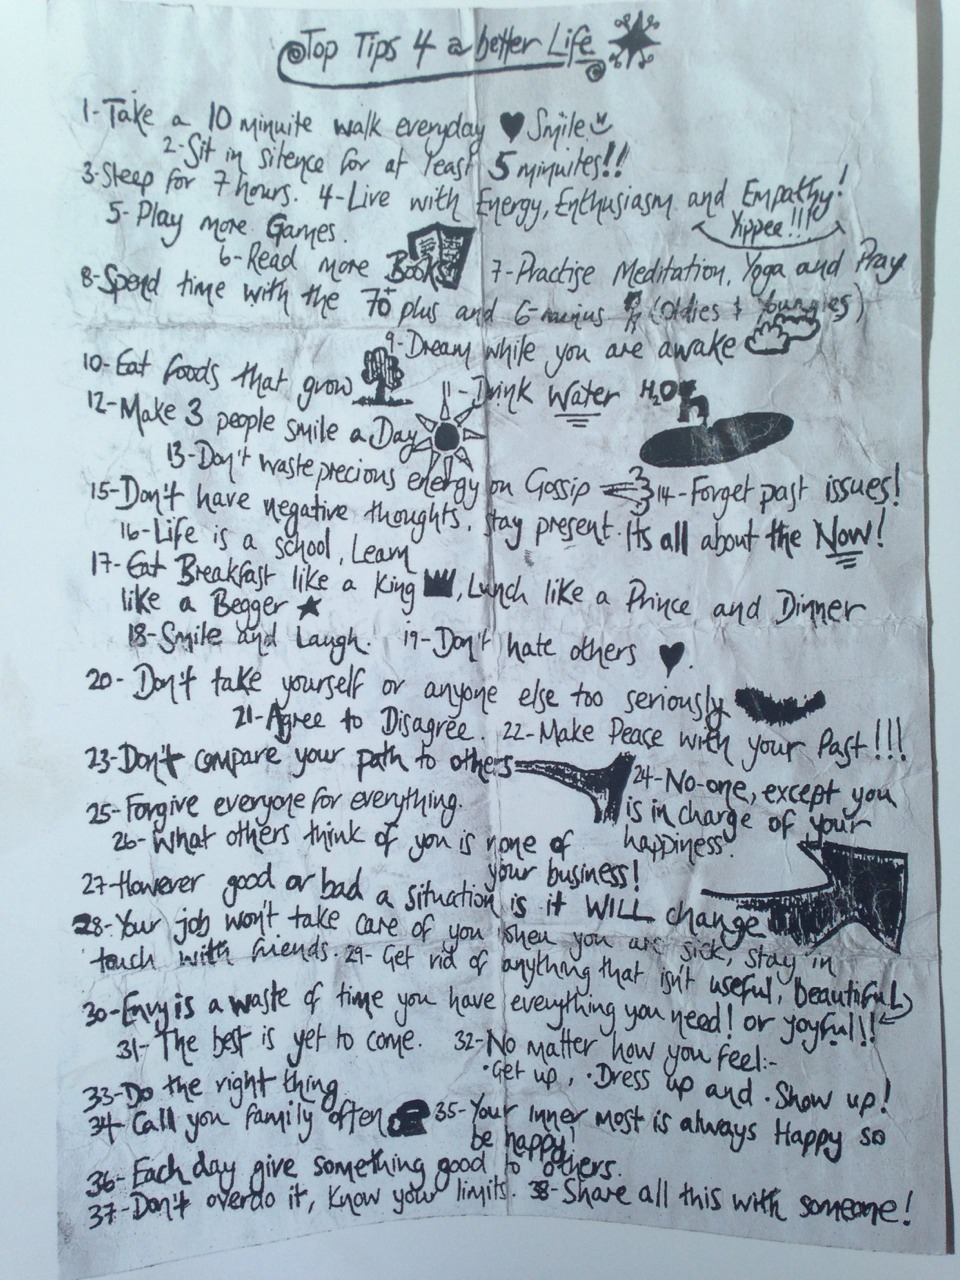 Top Tips 4 a better Life
1-Take a 10 minuite walk everyday Smile
2-Sit in silence for at least 5 minuites!!
3-Sleep for 7 hours. 4-Live with Energy, Enthusiasm and Empathy!
Yippee!!!
5-Play more Games.
6-Read more Books 7-Practise Meditation, Yoga and Pray
8-Spend time with the 70+ plus and 6-minus (Oldies &
9-Dream while you are awake
10-Eat foods that grow 11-Drink Water H2O
12-Make 3 people smile a Day
13-Don't waste precious energy on Gossip 14-Forget past issues!
15-Don't have negative thoughts, stay present. Its all about the Now!
16-Life is a school, Learn
17-Eat Breakfast like a King, Lunch like a Prince and Dinner
like a Begger
18-Smile and Laugh. 19-Don't hate others.
20-Don't take yourself or anyone else too seriously
21-Agree to Disagree. 22-Make Peace with your Past!!!
23-Don't compare your path to others
24-No-one, except you
is in charge of your
happiness.
25-Forgive everyone for everything.
26-What others think of you is none of
your business!
27-However good or bad a situation is it WILL change
28-Your job won't take care of you when you are sick, stay in
touch with friends. 29-Get rid of anything that isn't useful, beautiful
or joyful!!
30-Envy is a waste of time you have everything you need!
31-The best is yet to come. 32-No matter how you feel:-
·Get up, ·Dress up and ·Show up!
33-Do the right thing
34-Call you family often 35-Your inner most is always Happy so
be happy!
36-Each day give something good to others.
37-Don't overdo it, Know your limits. 38-Share all this with someone!